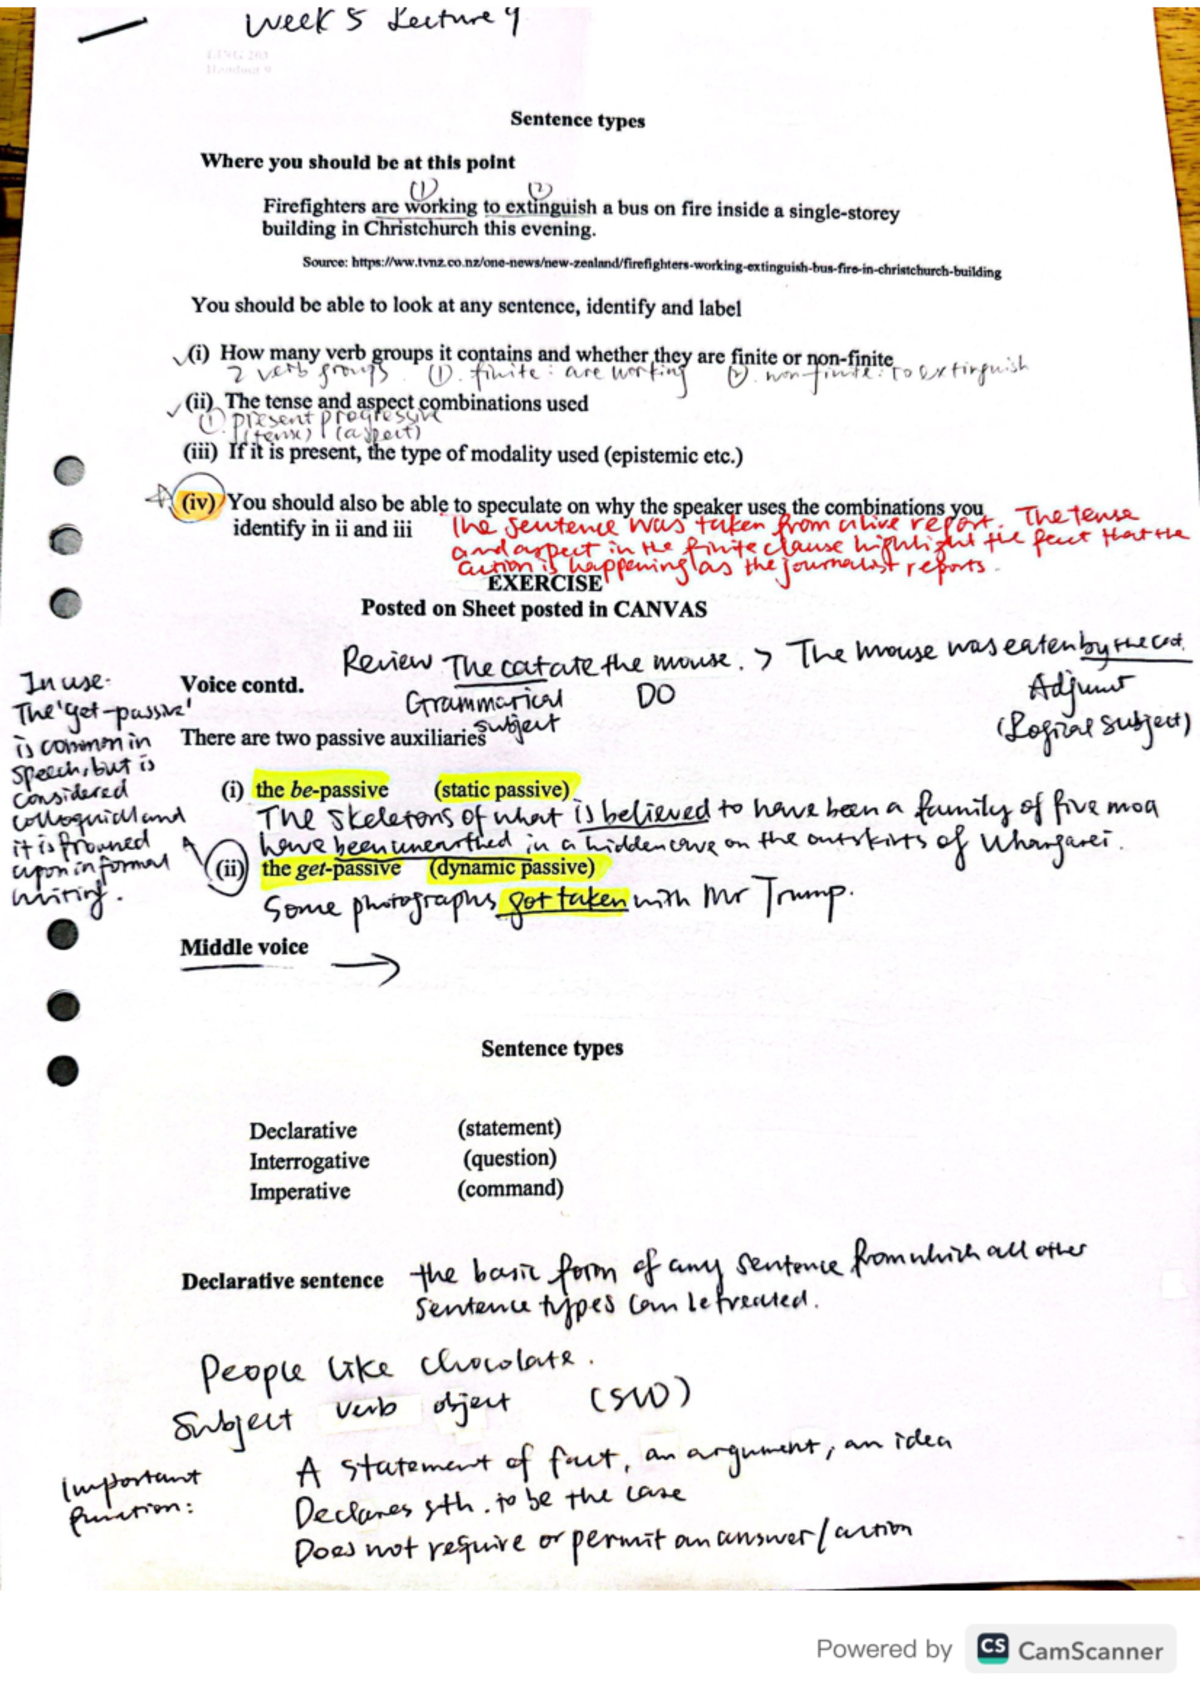 Week 5 Lecture 9
LING 203
Handout 9
Sentence types
Where you should be at this point
(1) (2)
Firefighters are working to extinguish a bus on fire inside a single-storey
building in Christchurch this evening.
Source: https://ww.tvnz.co.nz/one-news/new-zealand/firefighters-working-extinguish-bus-fire-in-christchurch-building
You should be able to look at any sentence, identify and label
(i) How many verb groups it contains and whether they are finite or non-finite
2 verb groups. (1). finite: are working (2). non-finite: to extinguish
(ii) The tense and aspect combinations used
(1). present progressive
(tense) (aspect)
(iii) If it is present, the type of modality used (epistemic etc.)
(iv) You should also be able to speculate on why the speaker uses the combinations you
identify in ii and iii
The sentence was taken from a live report. The tense
and aspect in the finite clause highlight the fact that the
action is happening as the journalist reports.
EXERCISE
Posted on Sheet posted in CANVAS
Review The cat ate the mouse. > The mouse was eaten by the cat.
Grammarical subject DO Adjunct
(Logical subject)
In use.
The 'get-passive'
is common in
speech, but is
considered
colloquial and
it is frowned
upon in formal
writing.
Voice contd.
There are two passive auxiliaries
(i) the be-passive (static passive)
The skeletons of what is believed to have been a family of five moa
have been unearthed in a hidden cave on the outskirts of Whangarei.
(ii) the get-passive (dynamic passive)
Some photographs got taken with Mr Trump.
Middle voice →
Sentence types
Declarative (statement)
Interrogative (question)
Imperative (command)
Declarative sentence the basic form of any sentence from which all other
sentence types can be treated.
People like chocolate.
Subject verb object (SVO)
Important
function:
A statement of fact, an argument, an idea
Declares sth. to be the case
Does not require or permit an answer/action
Powered by CS CamScanner